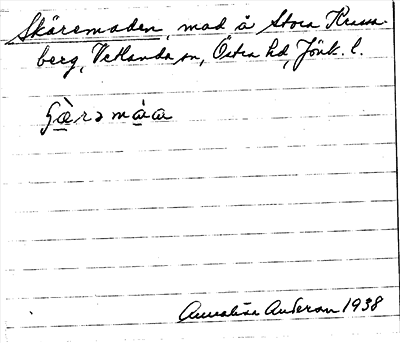 Skäremaden, mad å Stora Krassa-
berg, Vetlanda sn, Östra hd, Jönk. l.
Annalisa Anderson 1938